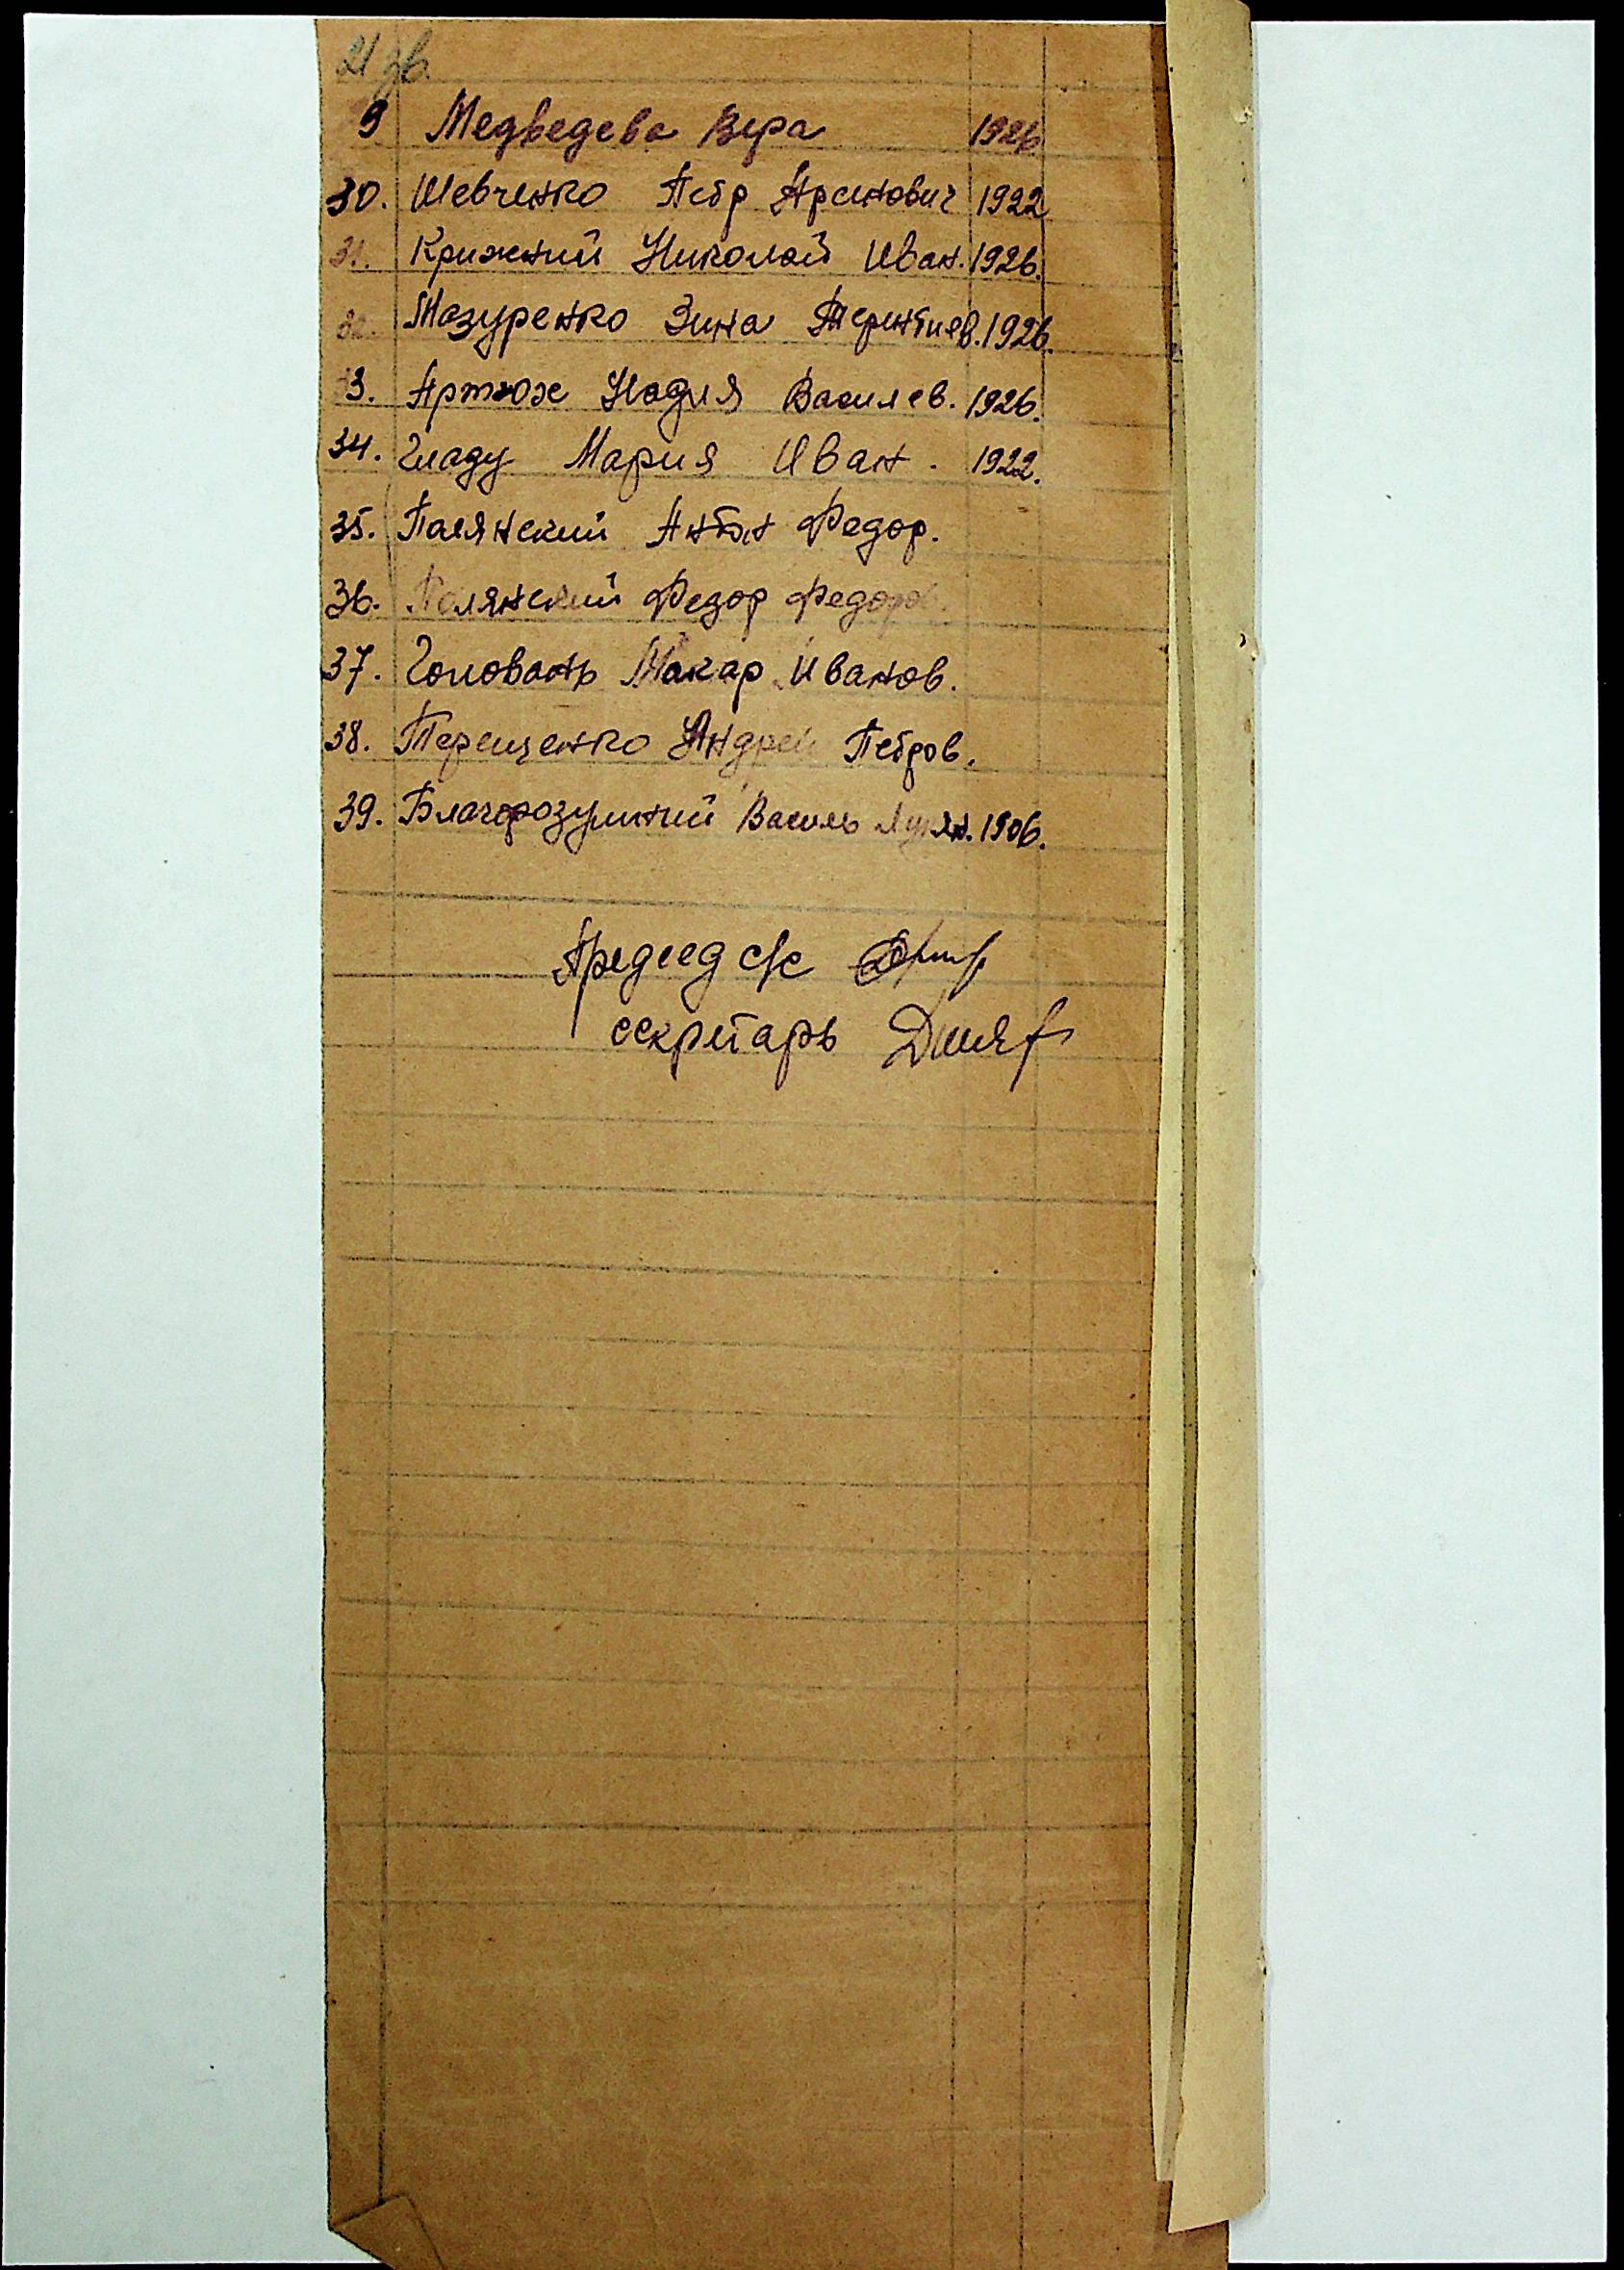 21 зв.
9 Медведева Вера 1926
30. Шевченко Петр Арсенович 1922
31. Крижний Николай Иван. 1926.
32. Мазуренко Зина Терентиев. 1926.
3. Артюх Надия Василев. 1926.
34. Гладу Мария Иван. 1922.
35. Палянский Антон Федор.
36. Полянский Федор Федоров.
37. Головань Макар Иванов.
38. Терещенко Андрей Петров.
39. Благоразумний Василь 1906.
Председ с/с
секретарь